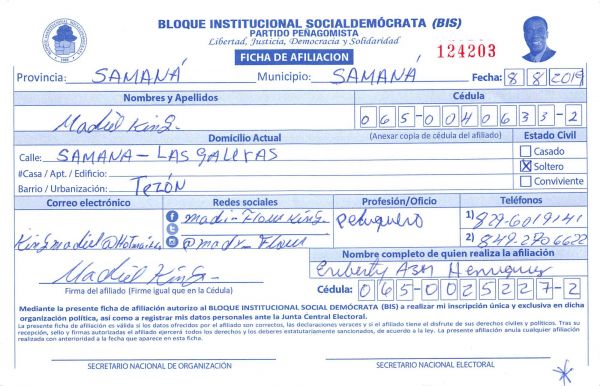 BLOQUE INSTITUCIONAL SOCIALDEMÓCRATA (BIS)
PARTIDO PEÑAGOMISTA
Libertad, Justicia, Democracia y Solidaridad
FICHA DE AFILIACION
124203
Provincia: SAMANÁ Municipio: SAMANÁ Fecha: 8 8 2019
Nombres y Apellidos Cédula
Madiel King. 065-0040633-2
Domicilio Actual (Anexar copia de cédula del afiliado) Estado Civil
Calle: SAMANA - LAS GALERAS Casado
#Casa / Apt. / Edificio: X Soltero
Barrio / Urbanización: Tezón Conviviente
Correo electrónico Redes sociales Profesión/Oficio Teléfonos
madi-Flow King Peluquero 1) 829-6019141
Kingmadiel@Hotmail.es @mady_Flow 2) 849-2706622
Nombre completo de quien realiza la afiliación
Madiel King Henriquez
Firma del afiliado (Firme igual que en la Cédula) Cédula: 065-0025227-2
Mediante la presente ficha de afiliación autorizo al BLOQUE INSTITUCIONAL SOCIAL DEMÓCRATA (BIS) a realizar mi inscripción única y exclusiva en dicha
organización política, así como a registrar mis datos personales ante la Junta Central Electoral.
La presente ficha de afiliación es válida si los datos ofrecidos por el afiliado son correctos, las declaraciones veraces y si el afiliado tiene el disfrute de sus derechos civiles y políticos. Tras su
recepción, sello y firmas autorizadas el afiliado ejercerá todos los derechos y los deberes estatutariamente sancionados, de acuerdo a la ley. La presente afiliación anula cualquier afiliación
realizada con anterioridad a la fecha que aparece en esta ficha.
SECRETARIO NACIONAL DE ORGANIZACIÓN SECRETARIO NACIONAL ELECTORAL